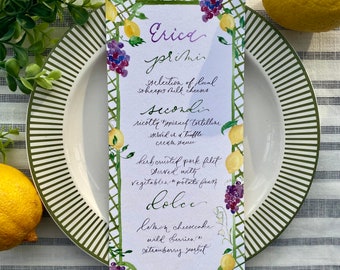 Erica
primi
selection of local
sheeps milk cheeses
secondi
ricotta & spinach tortellini
served in a truffle
cream sauce
herb crusted pork fillet
served with
vegetables & potato
dolce
lemon cheesecake
wild berries &
strawberry sorbet